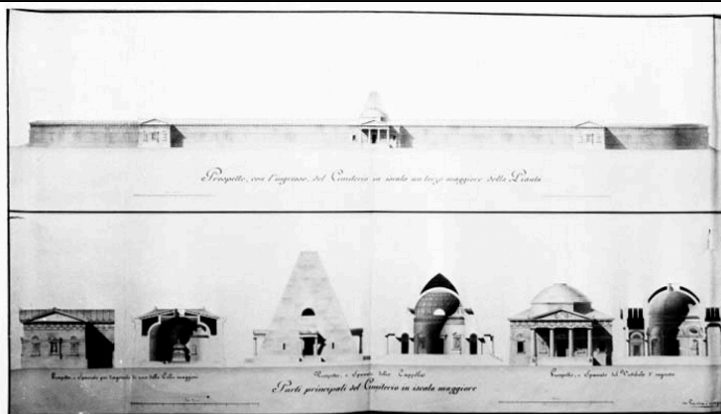 Prospetto, con l'ingresso, del Cimiterio in iscala un terzo maggiore della Pianta
Prospetto, e Spaccato per l'angolo di una delle Celle maggiori
Prospetto, e Spaccato della Cappella
Prospetto, e Spaccato del Vestibolo d'ingresso
Parti principali del Cimiterio in iscala maggiore